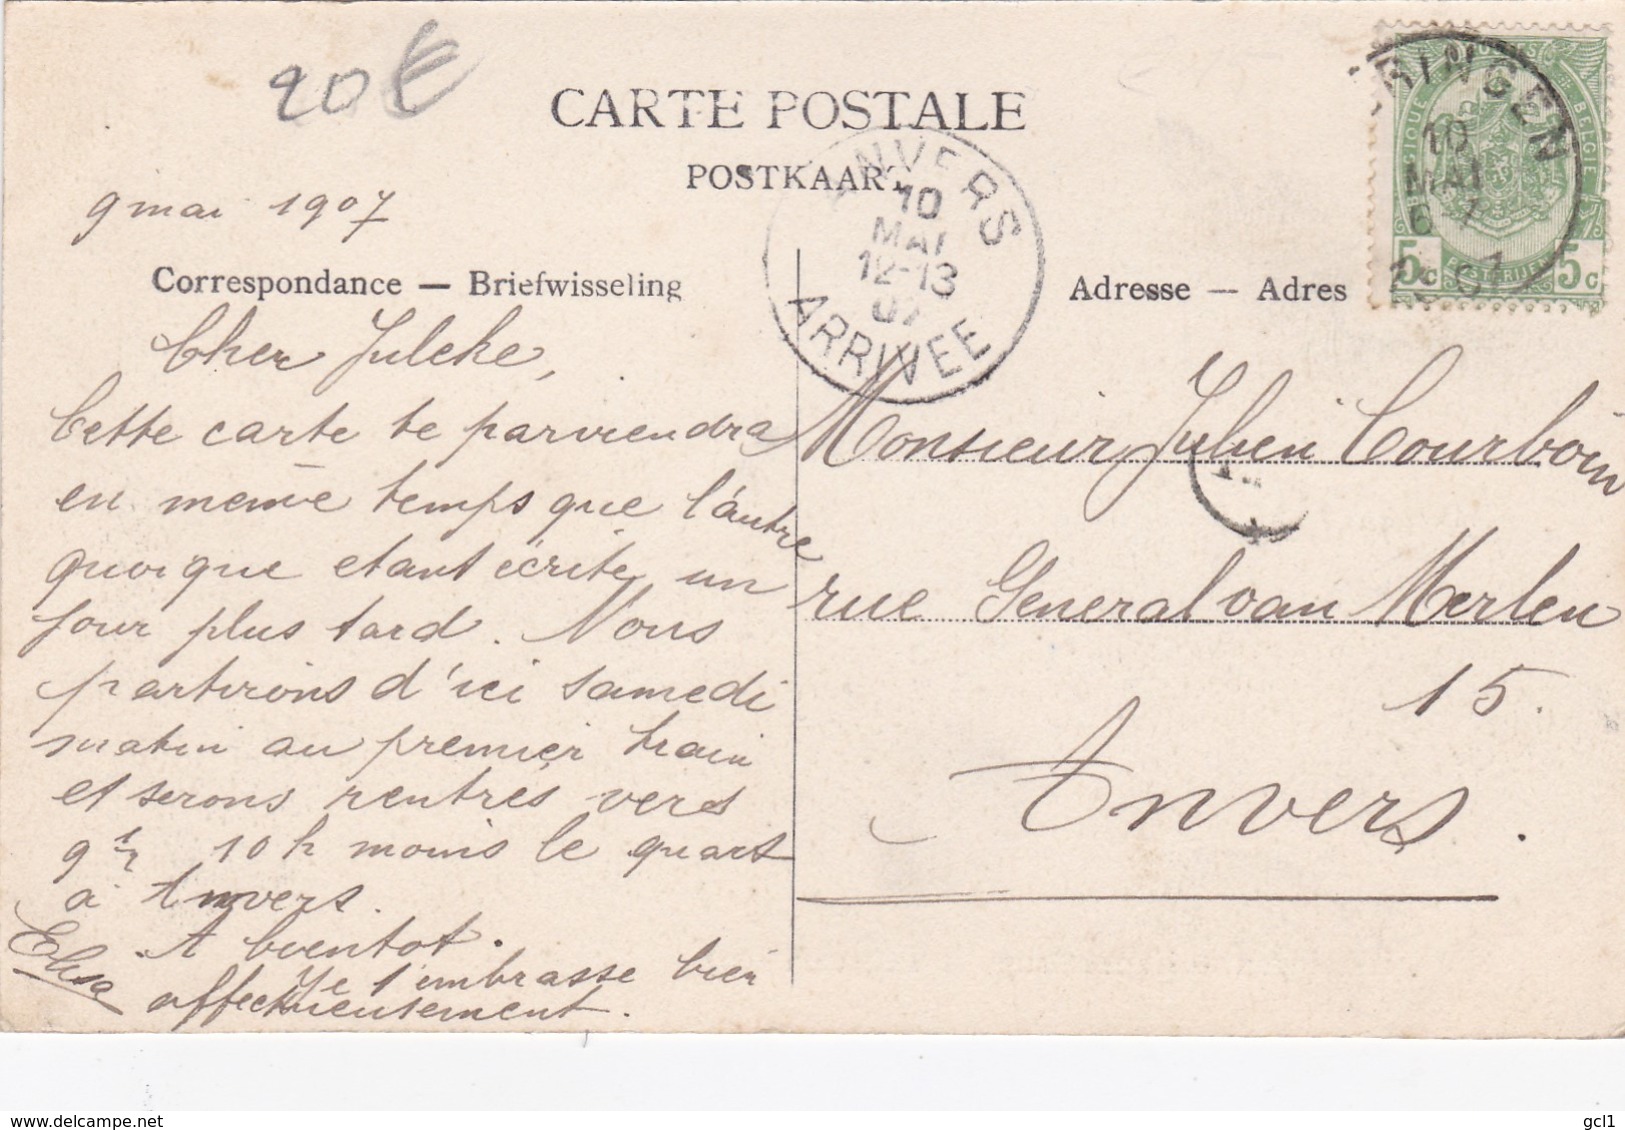 20€
CARTE POSTALE
POSTKAART
9 mai 1907
Correspondance — Briefwisseling
Adresse — Adres
ANVERS
10
MAI
12-13
07
ARRIVÉE
RINGEN
10
MAI
BELGIQUE
BELGIE
5c
5c
Cher Julche,
Cette carte te parviendra
en même temps que l'autre
quoique étant écrite un
jour plus tard. Nous
partirons d'ici samedi
matin au premier train
et serons rentrés vers
9½ 10 h moins le quart
à Anvers.
A bientot.
Je t'embrasse bien
affectueusement.
Elisa
Monsieur Julien Courboin
rue General van Merlen
15.
Anvers.
delcampe.net
gcl1